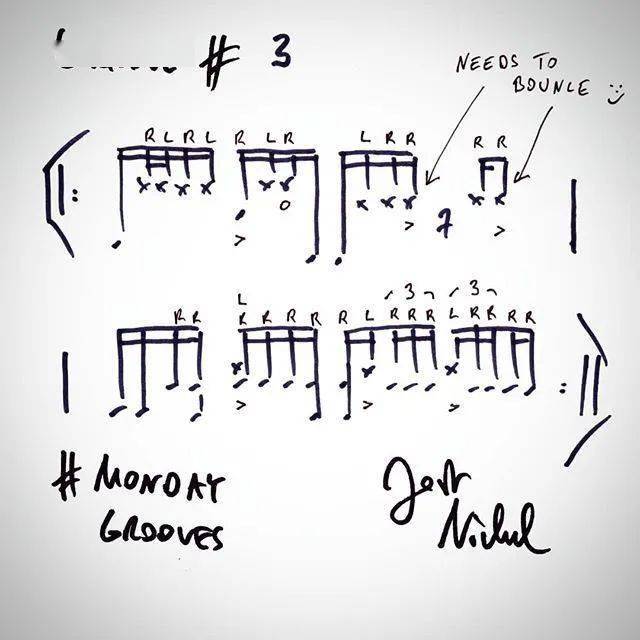 # 3
NEEDS TO
BOUNCE
R L R L R L R L R R R R
L 3 3
R R R R R R R L R R R L R R R R
# MONDAY
GROOVES
Jost
Nickel